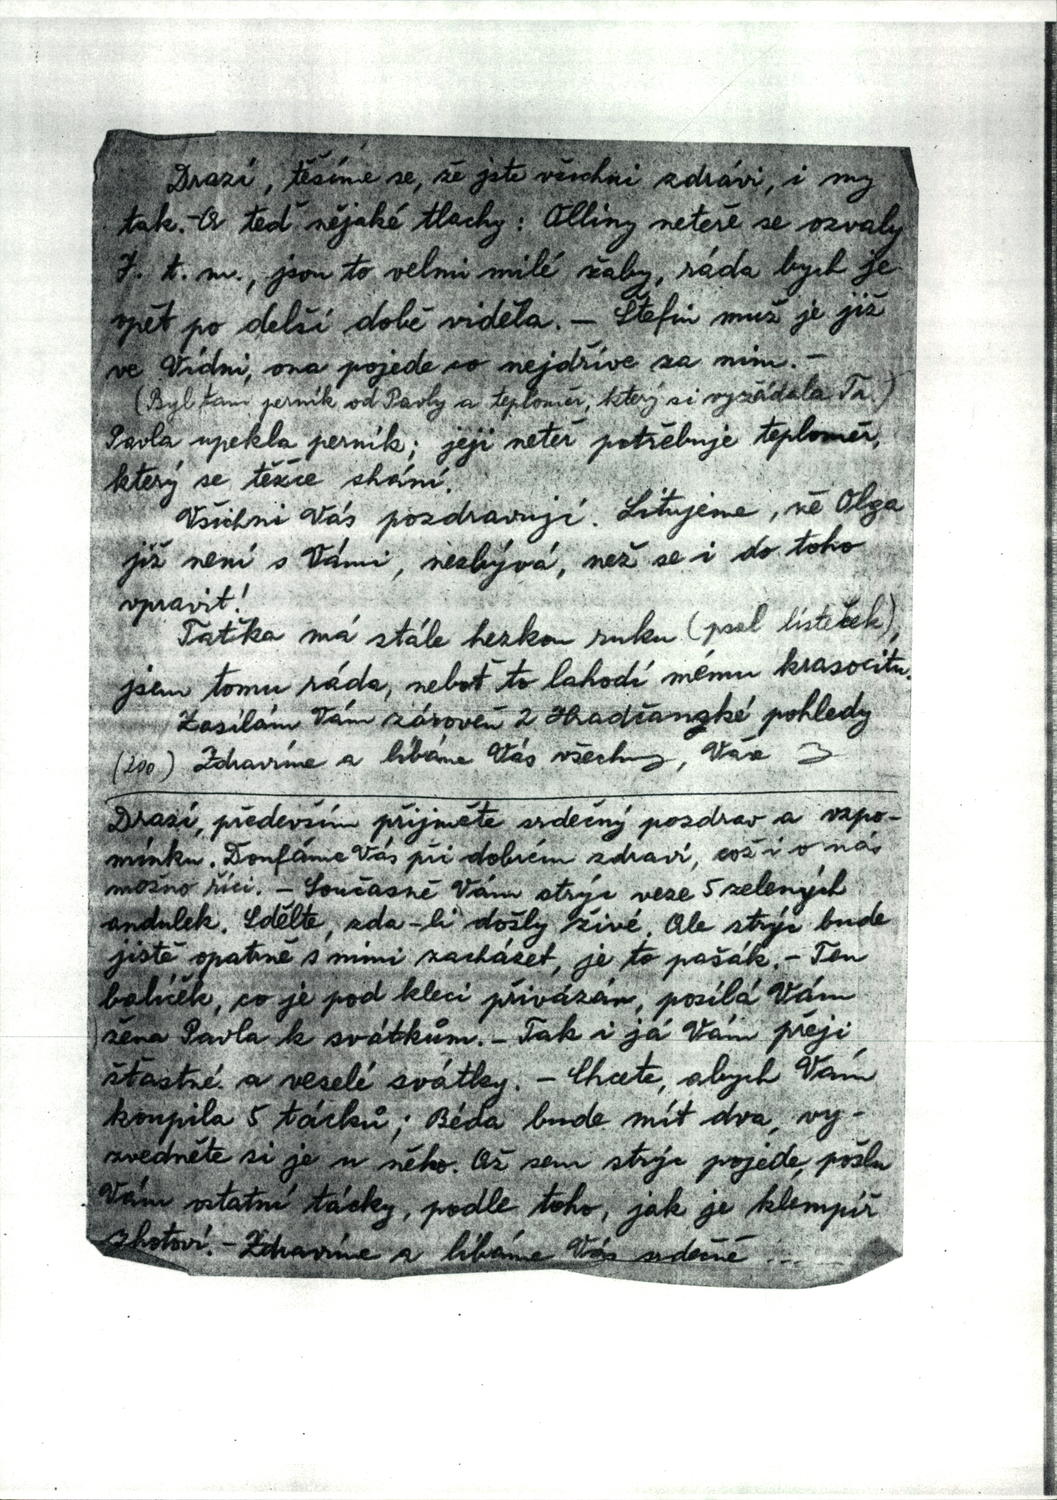 Drazí, těšíme se, že jste všichni zdrávi, i my
tak. – A teď nějaké tlachy: Olliny neteře se ozvaly
t. m., jsou to velmi milé žaby, ráda bych je
opět po delší době viděla. – Štefin muž je již
ve Vídni, ona pojede co nejdříve za ním. –
(Byl tam perník od Pavly a teploměr, který si vyžádala Tn.)
Pavla upekla perník; její neteř potřebuje teploměr,
který se těžce shání.
Všichni Vás pozdravují. Litujeme, že Olga
již není s Vámi, nezbývá, než se i do toho
vpravit!
Tatíka má stále hezkou ruku (psal lísteček),
jsem tomu ráda, neboť to lahodí mému krasocitu.
Zasílám Vám zároveň 2 Hradčanské pohledy
(200) Zdravíme a líbáme Vás všechny, Vaše
Drazí, především přijměte srdečný pozdrav a vzpo-
mínku. Doufáme Vás při dobrém zdraví, což i o nás
možno říci. – Současně Vám strýc veze 5 zelených
andulek. Sdělte, zda-li došly živé. Ale strýc bude
jistě opatrně s nimi zacházet, je to pašák. – Ten
balíček, co je pod klecí přivázán, posílá Vám
žena Pavla k svátkům. – Tak i já Vám přeji
šťastné a veselé svátky. – Chcete, abych Vám
koupila 5 tácků; Béda bude mít dva, vy-
zvedněte si je u něho. Až sem strýc pojede, pošlu
Vám ostatní tácky, podle toho, jak je klempíř
zhotoví. – Zdravíme a líbáme Vás srdečně ....